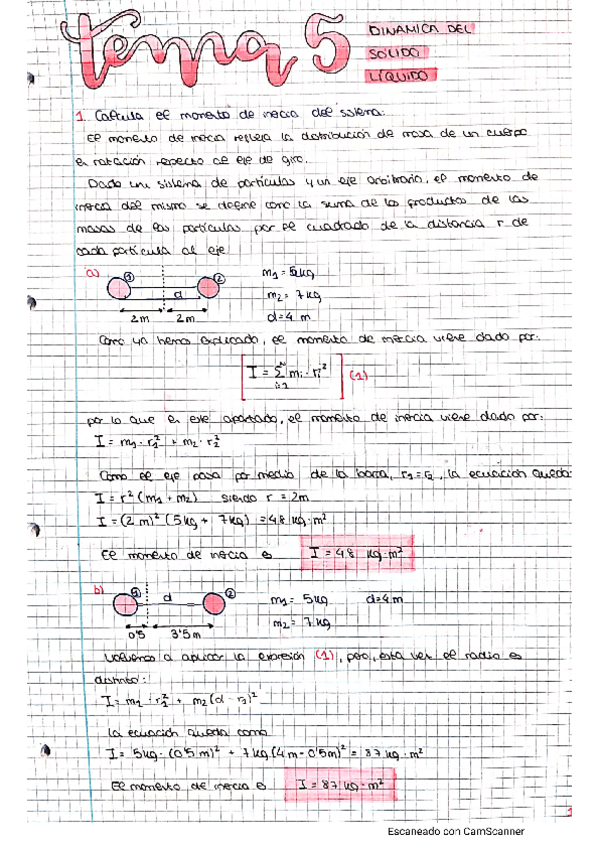 tema 5
DINAMICA DEL
SOLIDO
LIQUIDO
1. Calcula el momento de inercia del sistema:
El momento de inercia refleja la distribución de masa de un cuerpo
en rotación respecto al eje de giro.
Dado un sistema de partículas y un eje arbitrario, el momento de
inercia del mismo se define como la suma de los productos de las
masas de las partículas por el cuadrado de la distancia r de
cada partícula al eje
a) 1 2 m1 = 5kg
d m2 = 7kg
2m 2m d=4 m
Como ya hemos explicado, el momento de inercia viene dado por:
I = Σ mi · ri² (1)
i=1
por lo que en este apartado, el momento de inercia viene dado por:
I = m1 · r1² + m2 · r2²
Como el eje pasa por medio de la barra, r1=r2, la ecuación queda:
I = r² (m1 + m2) siendo r = 2m
I = (2 m)² (5kg + 7kg) = 48 kg·m²
El momento de inercia es I = 48 kg·m²
b) 1 d 2 m1 = 5kg d=4m
m2 = 7kg
0'5 3'5m
Volvemos a aplicar la expresión (1), pero, esta vez el radio es
distinto:
I = m1 · r1² + m2 (d - r1)²
la ecuación queda como
I = 5kg · (0'5 m)² + 7kg (4m - 0'5m)² = 87 kg·m²
El momento de inercia es I = 87 kg·m²
1
Escaneado con CamScanner